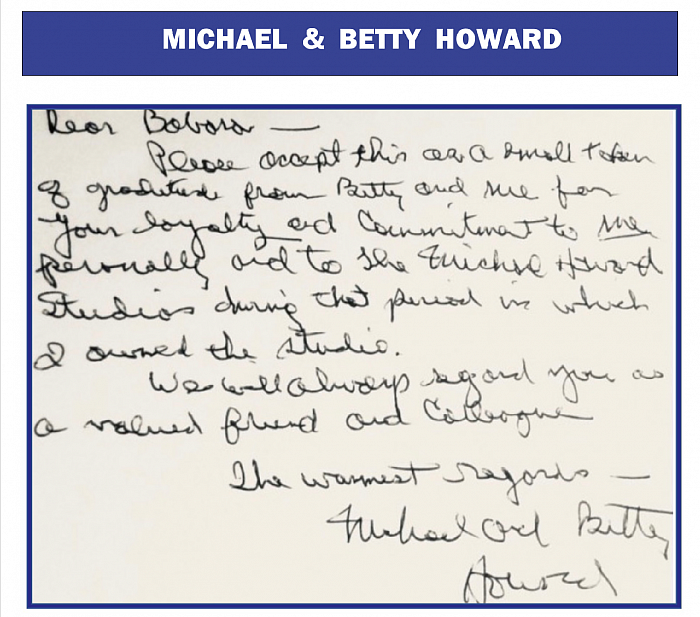 MICHAEL & BETTY HOWARD
Dear Bobara —
Please accept this as a small token
of gratitude from Betty and me for
your loyalty and Commitment to me
personally and to the Michael Howard
Studios during that period in which
I owned the studio.
We will always regard you as
a valued friend and Colleague
The warmest regards —
Michael and Betty
Howard